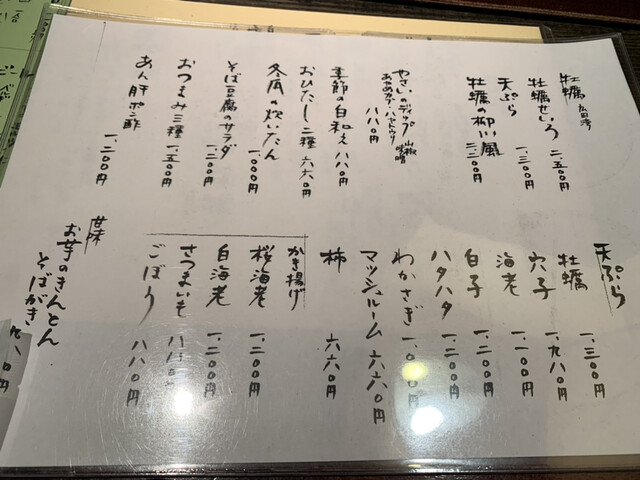 牡蠣 広田湾
牡蠣せいろ 二、五〇〇円
天ぷら 一、三〇〇円
牡蠣の柳川風 二、二〇〇円
やさいのディップ 八八〇円
山椒味噌
季節の白和え 八八〇円
おひたし二種 六六〇円
冬瓜の炊いたん 一、一〇〇円
そば豆腐のサラダ 一、二〇〇円
おつまみ三種 一、五〇〇円
あん肝ポン酢 一、二〇〇円
天ぷら
牡蠣 一、三〇〇円
穴子 一、九八〇円
海老 一、一〇〇円
白子 一、二〇〇円
ハタハタ 一、二〇〇円
わかさぎ
マッシュルーム 六六〇円
柿 六六〇円
かき揚げ
桜海老 一、二〇〇円
白海老 一、二〇〇円
さつまいも
ごぼう 八八〇円
甘味
お芋のきんとん
そばがき